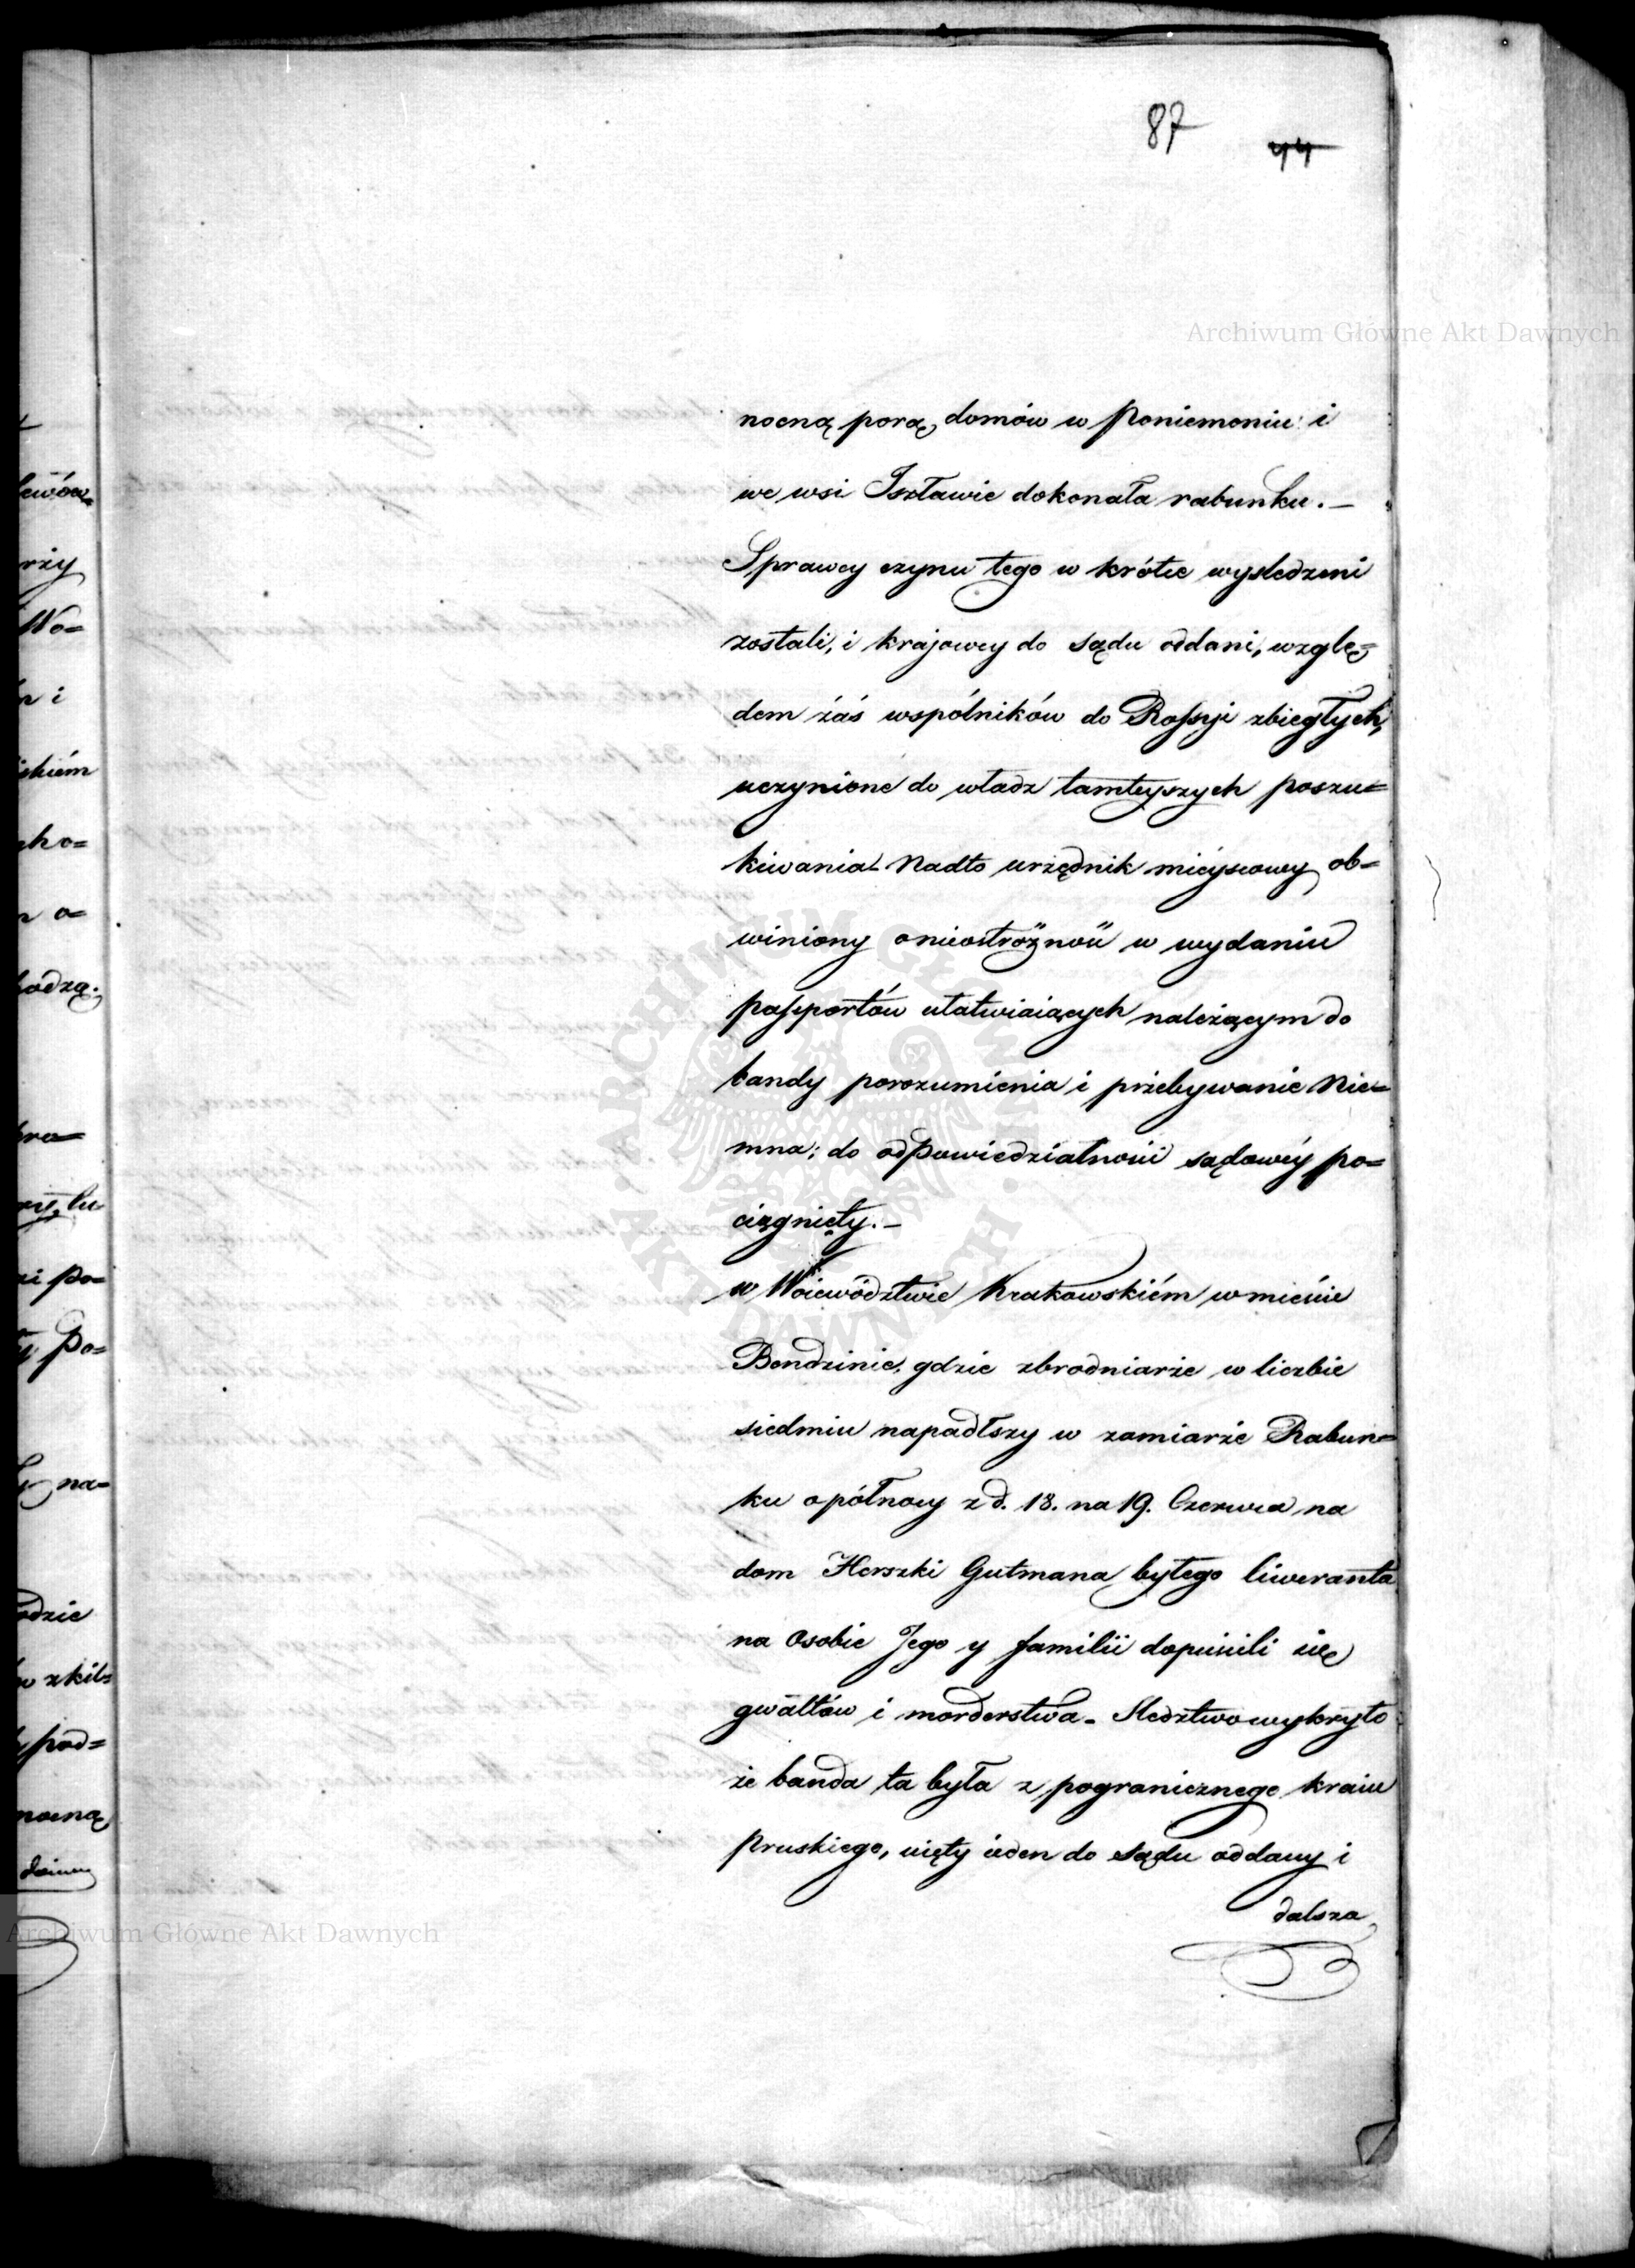 87 44
Archiwum Główne Akt Dawnych
nocną porą domów w Poniemoniu i
we wsi Isztawie dokonała rabunku. —
Sprawcy czynu tego w krótce wysledzeni
zostali, i krajowcy do sądu oddani, wzglę=
dem zaś wspólników do Rossyi zbiegłych,
uczynione do władz tamteyszych poszu=
kiwania. Nadto urzędnik mieyscowy ob=
winiony o nieostrożność w wydaniu
passportów ułatwiaiących należącym do
bandy porozumienia i przebywanie Nie=
mna; do odpowiedzialności sądowéy po=
ciągnięty. —
w Woiewództwie Krakowskiém w mieście
Bendzinie, gdzie zbrodniarze w liczbie
siedmiu napadłszy w zamiarze Rabun=
ku o północy z d. 18. na 19. Czerwca na
dom Herszki Gutmana byłego liweranta
na osobie Jego y familii dopuścili się
gwałtów i morderstwa. Sledztwo wykryło
że banda ta była z pogranicznego kraiu
Pruskiego, uięty ieden do sądu oddany i
dalsza
Archiwum Główne Akt Dawnych
ARCHIWUM GŁÓWNE AKT DAWNYCH